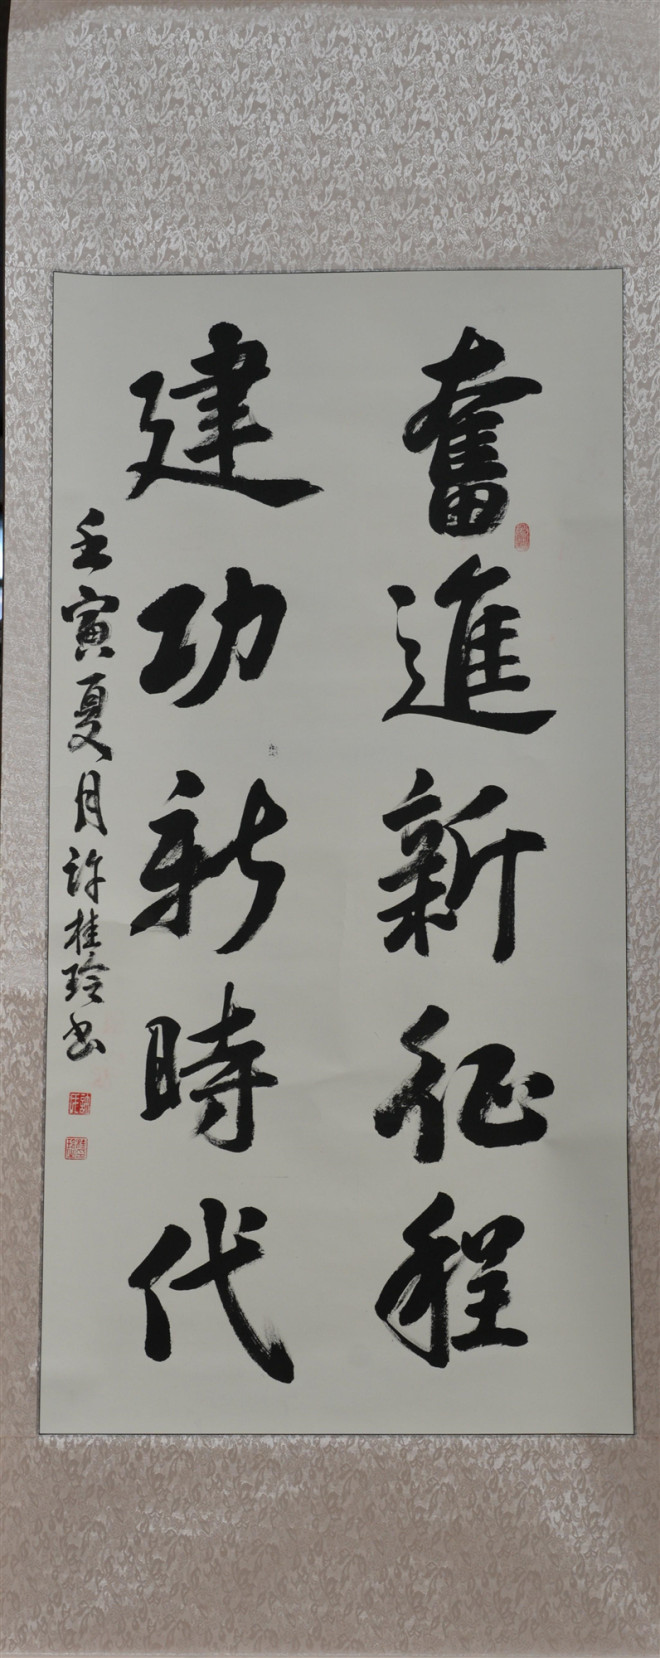 奮進新征程
建功新時代
壬寅夏月許桂玲书